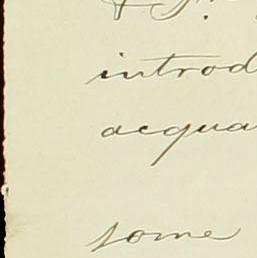 introd
acqua
some